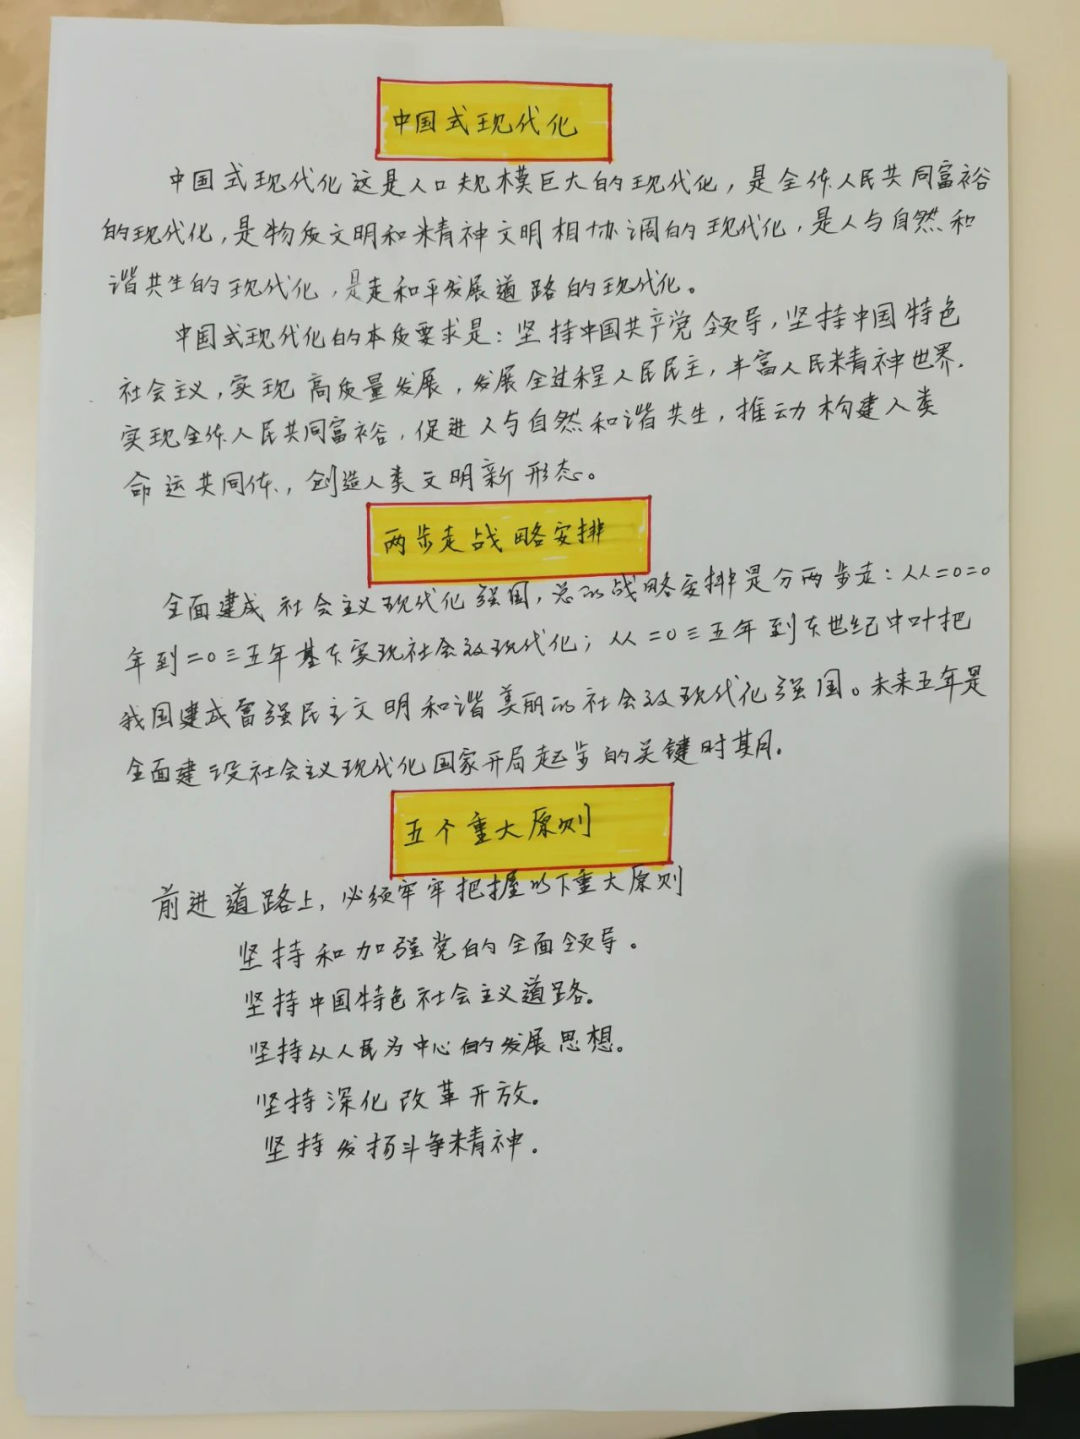 中国式现代化
中国式现代化这是人口规模巨大的现代化，是全体人民共同富裕
的现代化，是物质文明和精神文明相协调的现代化，是人与自然和
谐共生的现代化，是走和平发展道路的现代化。
中国式现代化的本质要求是：坚持中国共产党领导，坚持中国特色
社会主义，实现高质量发展，发展全过程人民民主，丰富人民精神世界.
实现全体人民共同富裕，促进人与自然和谐共生，推动构建人类
命运共同体，创造人类文明新形态。
两步走战略安排
全面建成社会主义现代化强国，总的战略安排是分两步走：从二〇二〇
年到二〇三五年基本实现社会主义现代化；从二〇三五年到本世纪中叶把
我国建成富强民主文明和谐美丽的社会主义现代化强国。未来五年是
全面建设社会主义现代化国家开局起步的关键时期.
五个重大原则
前进道路上，必须牢牢把握以下重大原则
坚持和加强党的全面领导.
坚持中国特色社会主义道路.
坚持以人民为中心的发展思想。
坚持深化改革开放.
坚持发扬斗争精神.